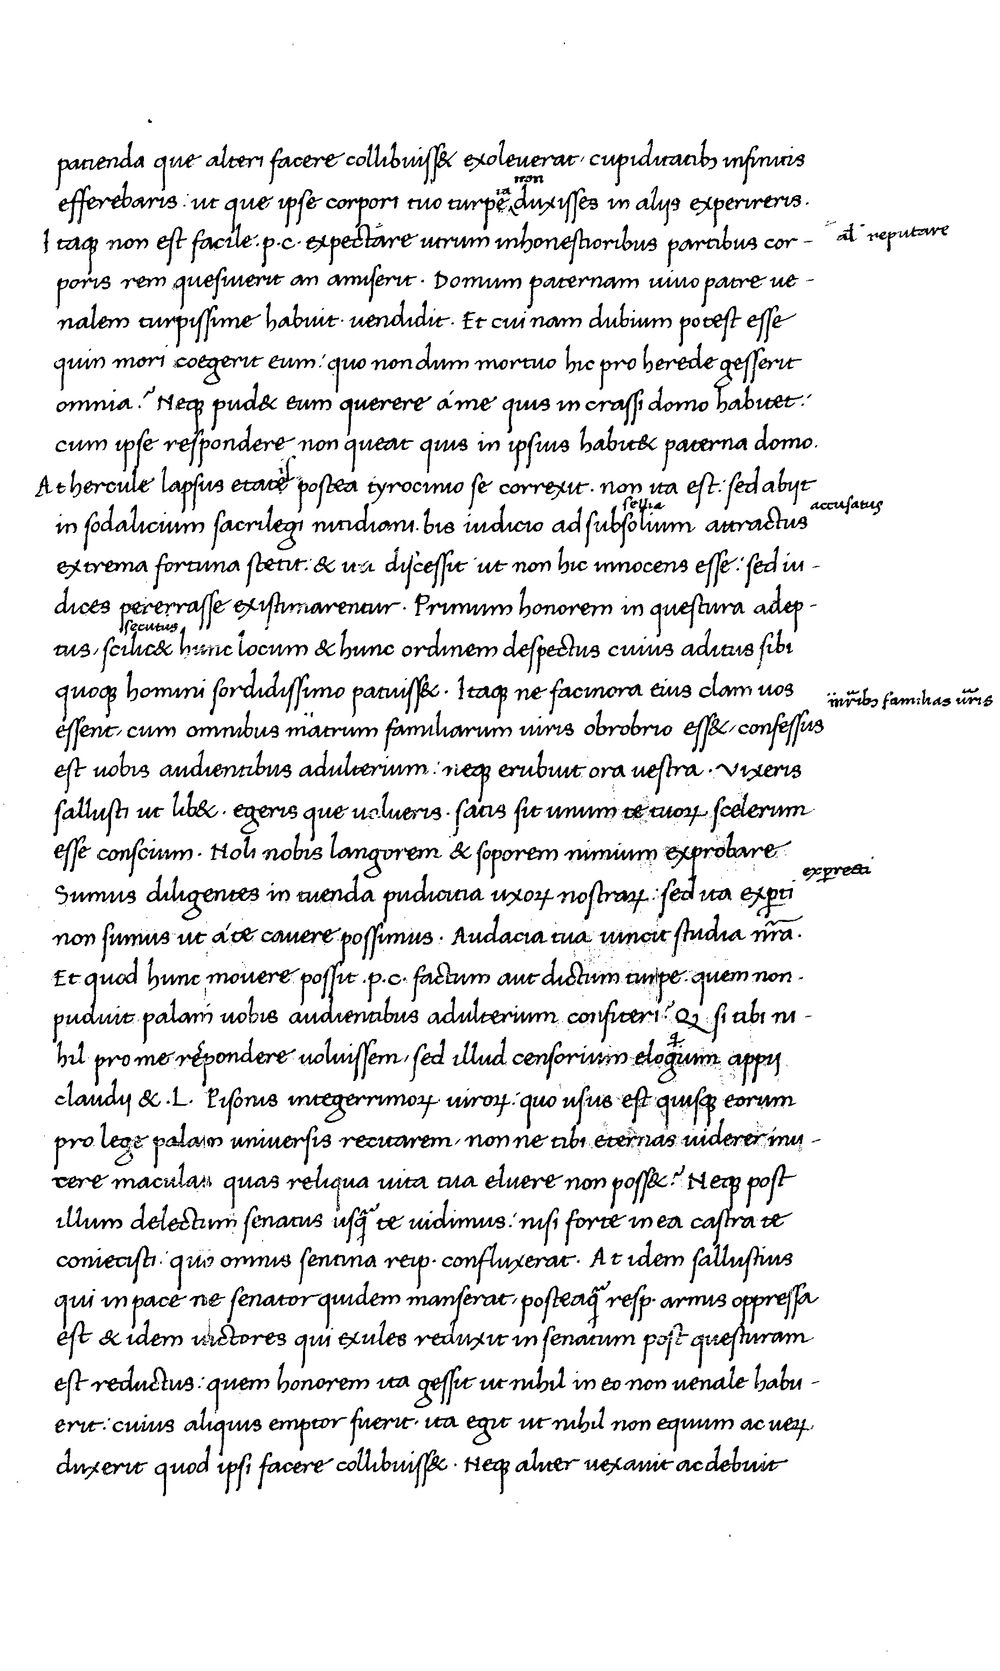 patienda que alteri facere collibuiss& exoleuerat, cupiditatibꝫ infinitis
non
efferebaris: ut que ipse corpori tuo turpe, duxisses in alijs experireris.
Itaqꝫ non est facile .p.c. expectare utrum inhonestioribus partibus cor-
al' reputare
poris rem quesiuerit an amiserit. Domum paternam uiuo patre ue-
nalem turpissime habuit. uendidit. Et cuinam dubium potest esse
quin mori coegerit eum: quo nondum mortuo hic pro herede gesserit
omnia? Neqꝫ pud& eum querere á me quis in crassi domo habitet:
cum ipse respondere non queat quis in ipsius habit& paterna domo.
At hercule lapsus etate postea tyrocinio se correxit. non ita est: sed abijt
in sodalicium sacrilegi nitidiani. bis iudicio ad subsolium attractus
sellia
accusatus
extrema fortuna stetit: & ita discessit ut non hic innocens esse: sed iu-
dices pererrasse existimarentur. Primum honorem in questura adep-
secutus
tus, scilic& hunc locum & hunc ordinem despectus cuius aditus sibi
quoqꝫ homini sordidissimo patuiss&. Itaqꝫ ne facinora eius clam uos
m̄ribꝫ familias ūris
essent, cum omnibus matrum familiarum uiris obrobrio ess&, confessus
est uobis audientibus adulterium: neqꝫ erubuit ora uestra. Vixeris
sallusti ut lib&. egeris que uolueris. satis sit unum te tuoꝝ scelerum
esse conscium. Noli nobis langorem & soporem nimium exprobare
Sumus diligentes in tuenda pudicitia uxoꝝ nostraꝝ: sed ita exꝑti
exꝑrecti
non sumus ut á te cauere possimus. Audacia tua uincit studia nr̄a.
Et quod hunc mouere possit .p.c. factum aut dictum turpe: quem non
puduit palam uobis audientibus adulterium confiteri? Q' si tibi ni-
hil pro me répondere uoluissem, sed illud censorium elogium appij
claudij & .L. Pisonis integerrimoꝝ uiroꝝ: quo usus est quisqꝫ eorum
pro lege palam uniuersis recitarem, non ne tibi eternas uiderer inu-
rere maculas quas reliqua uita tua eluere non poss&? Neqꝫ post
illum delectum senatus usqꝫ̄ te uidimus: nisi forte in ea castra te
coniecisti: quo omnis sentina reip. confluxerat. At idem sallustius
qui in pace ne senator quidem manserat, posteaq̄ resp. armis oppressa
est & idem uictores qui exules reduxit in senatum post questuram
est reductus: quem honorem ita gessit ut nihil in eo non uenale habu-
erit: cuius aliquis emptor fuerit. ita egit ut nihil non equum ac ueꝝ
duxerit quod ipsi facere collibuiss&. Neqꝫ aliter uexauit ac debuit